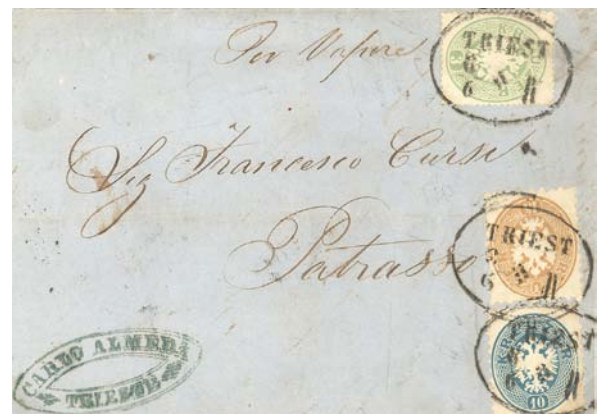 Per Vapore
TRIEST
6
Sig Francesco Cursi
Patrasso
TRIEST
6
TRIEST
6
10
CARLO ALMEDA
TRIESTE